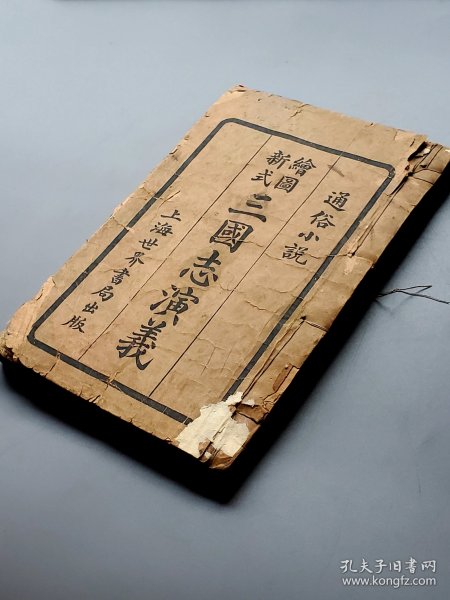 通俗小說
繪圖
新式
三國志演義
上海世界書局出版
孔夫子旧书网
www.kongfz.com